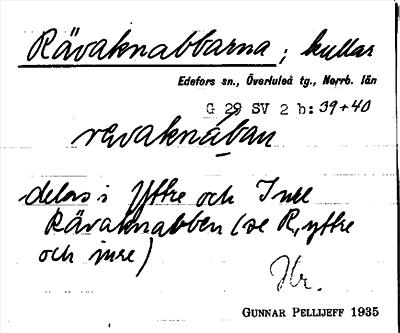 Rävaknabbarna; kullar
Edefors sn., Överluleå tg., Norrb. län
G 29 SV 2 b: 39+40
revaknában
delas i Yttre och Inre
Rävaknabben (se R, yttre
och inre)
Hr.
GUNNAR PELLIJEFF 1935